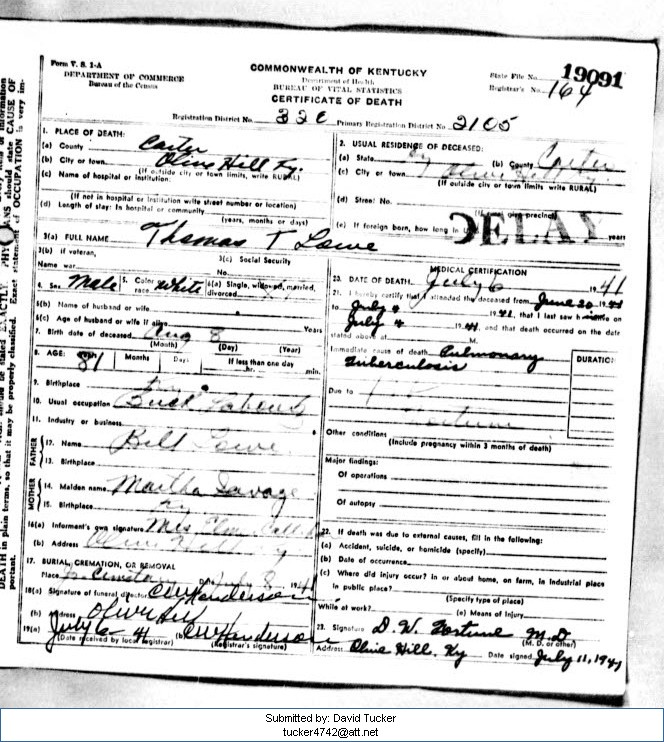 Form V. S. 1-A
DEPARTMENT OF COMMERCE
Bureau of the Census
COMMONWEALTH OF KENTUCKY
Department of Health
BUREAU OF VITAL STATISTICS
CERTIFICATE OF DEATH
State File No. 19091
Registrar's No. 164
Registration District No. Primary Registration District No. 2105
1. PLACE OF DEATH:
(a) County Carter
(b) City or town Olive Hill Ky.
(If outside city or town limits, write RURAL)
(c) Name of hospital or institution:
(If not in hospital or institution write street number or location)
(d) Length of stay: In hospital or community
(years, months or days)
2. USUAL RESIDENCE OF DECEASED:
(a) State Ky (b) County Carter
(c) City or town Olive Hill
(If outside city or town limits, write RURAL)
(d) Street No.
(If rural give precinct)
(e) If foreign born, how long in years
DELAY
3(a) FULL NAME Thomas T Lowe
3(b) If veteran,
Name war
3(c) Social Security
No.
4. Sex Male 5. Color race White 6(a) Single, widowed, married, divorced
6(b) Name of husband or wife
6(c) Age of husband or wife if alive Years
7. Birth date of deceased Aug 8
(Month) (Day) (Year)
8. AGE: 81 Months Days If less than one day
hr. min.
9. Birthplace
10. Usual occupation
11. Industry or business
FATHER
12. Name Bill Lowe
13. Birthplace
MOTHER
14. Maiden name Martha Savage
15. Birthplace Ky
16(a) Informant's own signature Mrs
(b) Address Olive Hill Ky
17. BURIAL, CREMATION, OR REMOVAL
Place Date July 8 1941
18(a) Signature of funeral director CW Henderson
(b) Address Olive Hill
19(a) July 6 41 (b) CW Henderson
(Date received by local registrar) (Registrar's signature)
MEDICAL CERTIFICATION
20. DATE OF DEATH July 6 1941
21. I hereby certify that I attended the deceased from June 20, 1941
to July 4 1941, that I last saw h alive on
July 4 1941, and that death occurred on the date
stated above at M.
Immediate cause of death Pulmonary
tuberculosis
DURATION
Due to
Other conditions
(Include pregnancy within 3 months of death)
Major findings:
Of operations
Of autopsy
22. If death was due to external causes, fill in the following:
(a) Accident, suicide, or homicide (specify)
(b) Date of occurrence
(c) Where did injury occur? In or about home, on farm, in industrial place
in public place?
(Specify type of place)
While at work? (e) Means of injury
23. Signature D. W. Fortune M.D.
(M. D. or other)
Address Olive Hill, Ky Date signed July 11, 1941
Submitted by: David Tucker
tucker4742@att.net